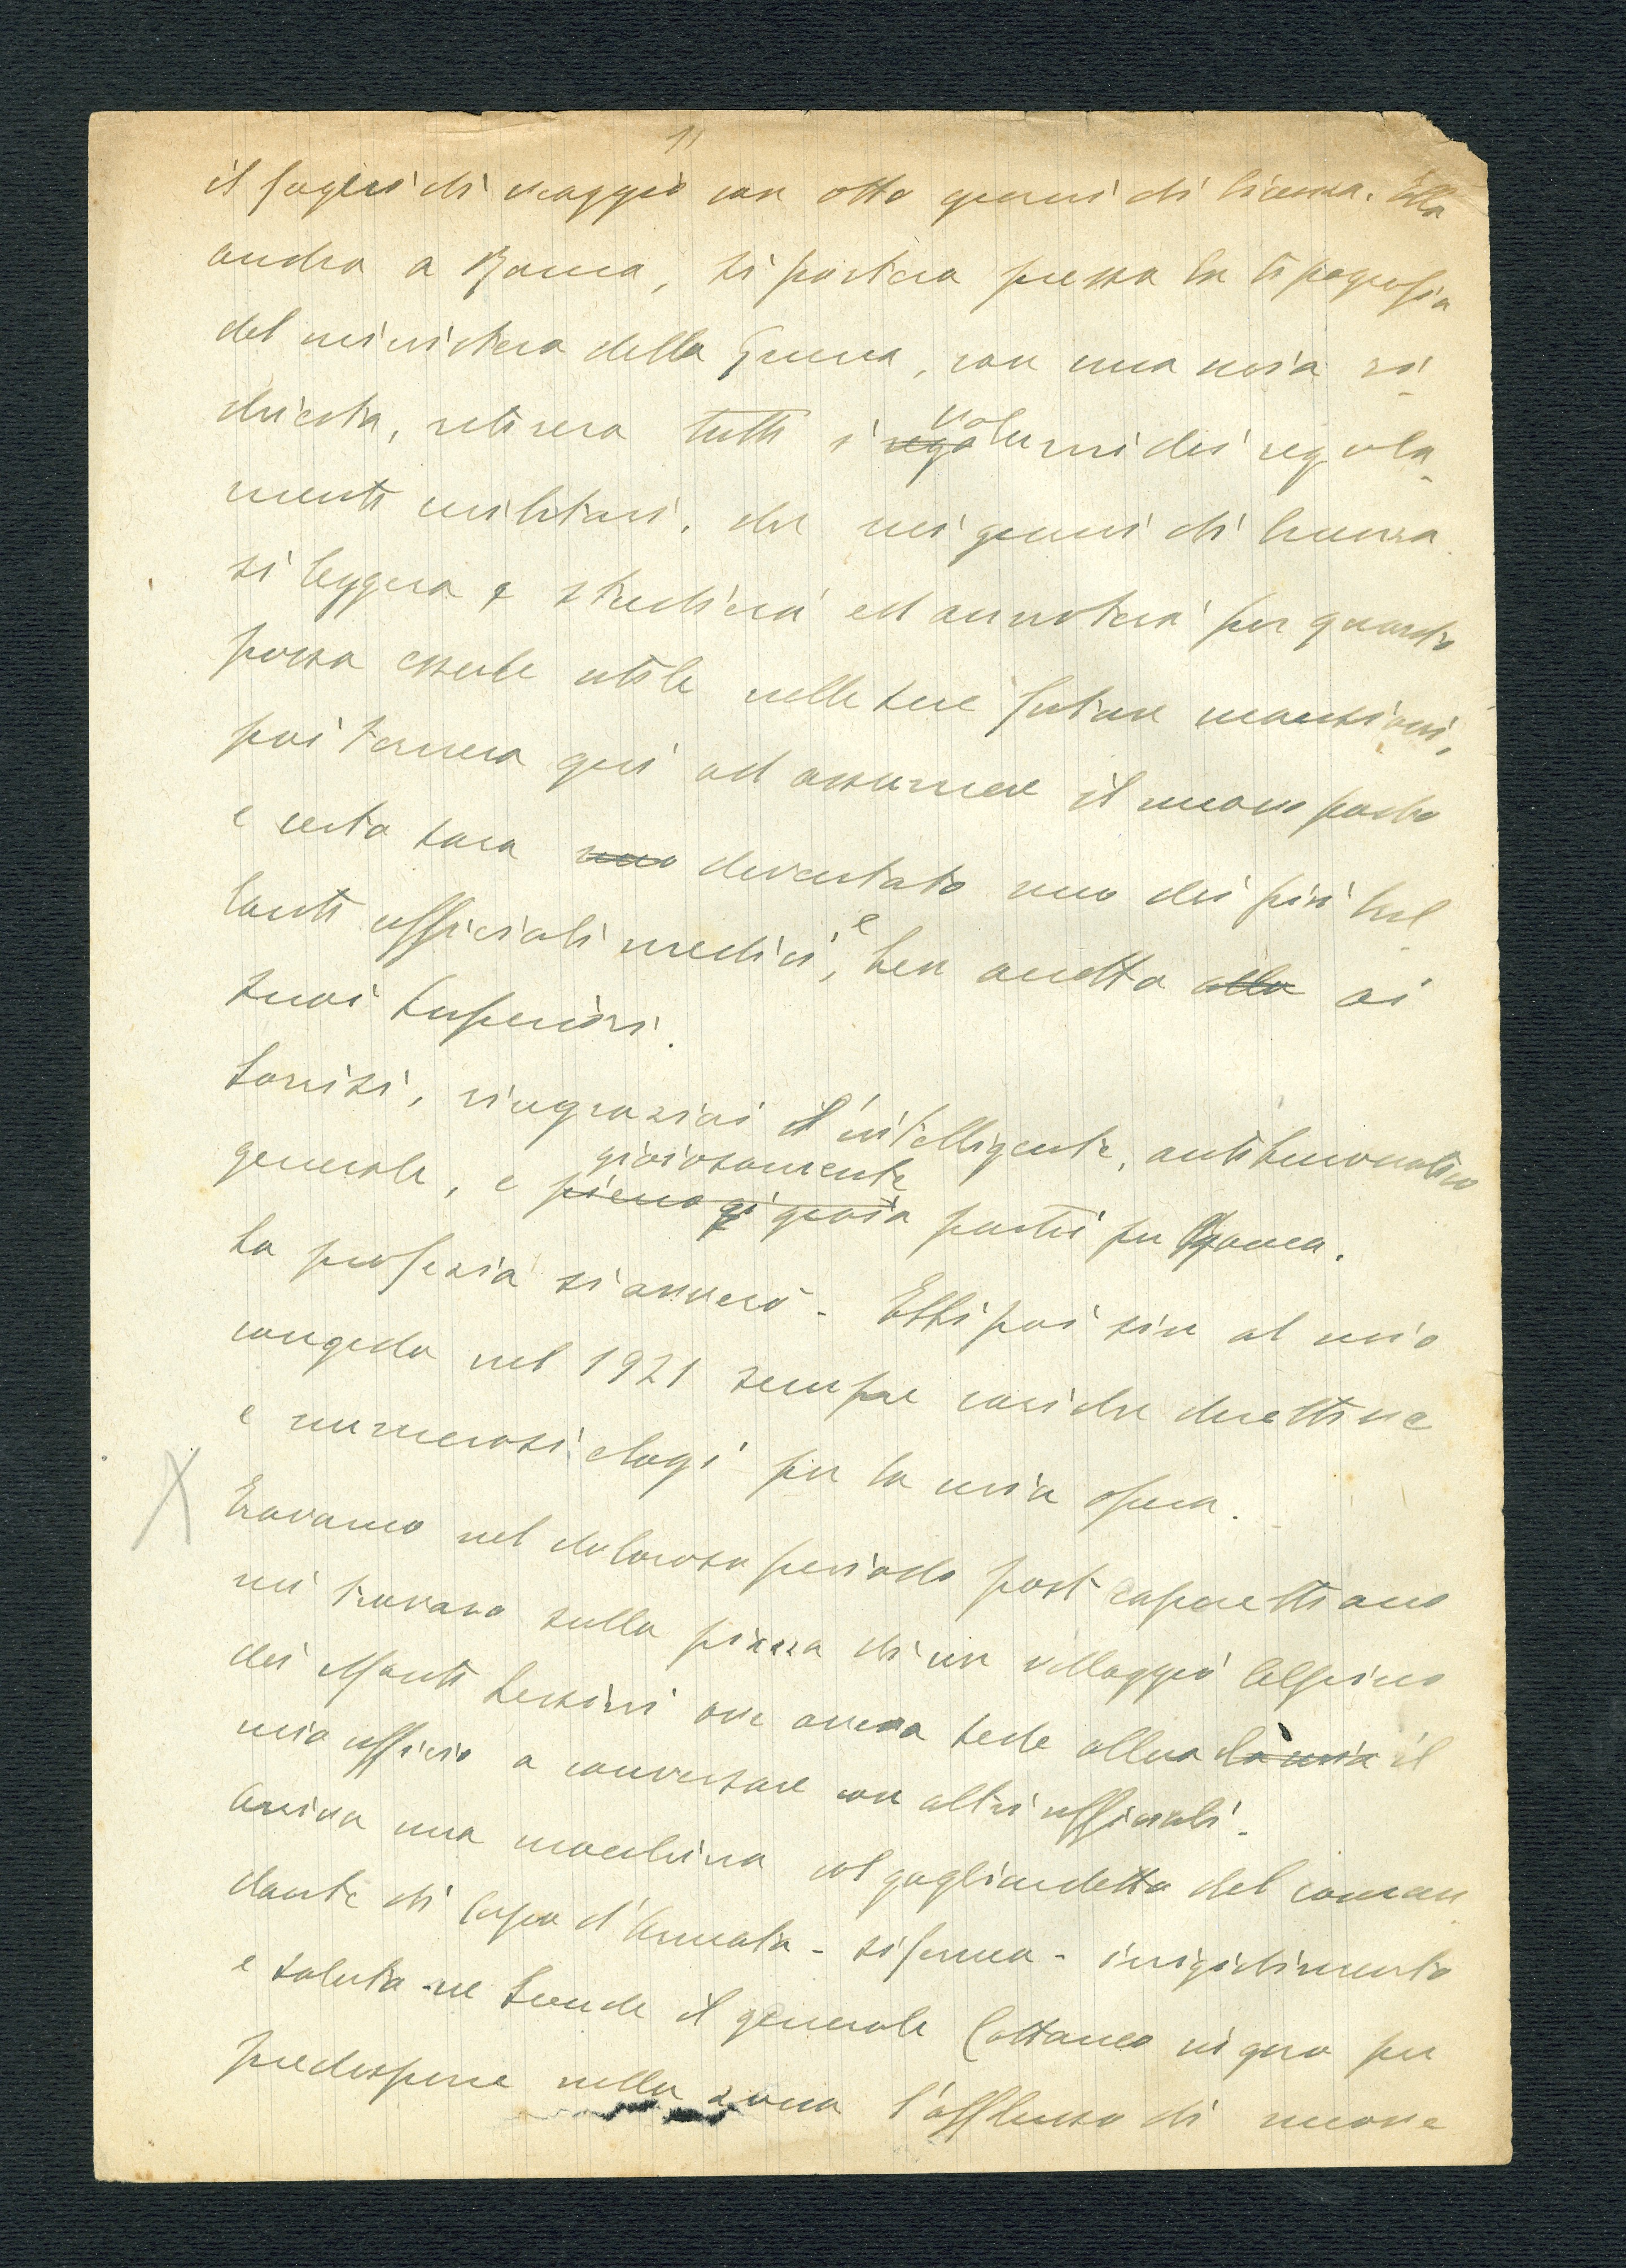 11
il foglio di viaggio con otto giorni di licenza. Ella
andrà a Roma, si porterà presso la tipografia
del ministero della Guerra, con una mia ri-
chiesta, ritirerà tutti i rego volumi dei regola-
menti militari, che nei giorni di licenza
si leggerà e studierà ed annoterà per quanto
possa esserle utile nelle sue future mansioni,
poi tornerà qui ad assumere il nuovo posto
e certo sarà uno diventato uno dei più bril-
lanti ufficiali medici, e ben accetto alla ai
suoi superiori.
Sorrisi, ringraziai il l'intelligente, antiburocratico
generale, e pieno di gioia gioiosamente partii per Roma.
La profezia si avverò - Ebbi poi sin al mio
congedo nel 1921 sempre cariche direttive
e numerosi elogi per la mia opera.
X Eravamo nel doloroso periodo post caporettiano
mi trovavo sulla piazza di un villaggio alpino
dei Monti Lessini ove aveva sede allora la mia il
mio ufficio a conversare con altri ufficiali.
Arriva una macchina col gagliardetto del coman
dante di Corpo d'Armata - si ferma - irrigidimento
e saluto - ne scende il generale Cattaneo in giro per
predisporre nella zona l'afflusso di nuove